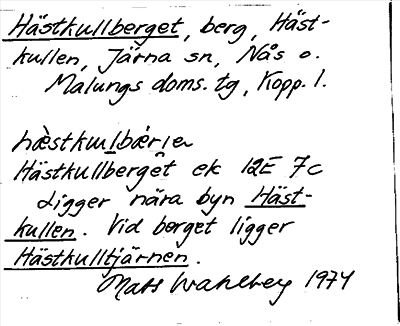 Hästkullberget, berg, Häst-
kullen, Järna sn, Nås o.
Malungs doms. tg, Kopp. l.
Hästkullberget ek 12E 7c
Ligger nära byn Häst-
kullen. Vid berget ligger
Hästkulltjärnen.
Mats Wahlberg 1974